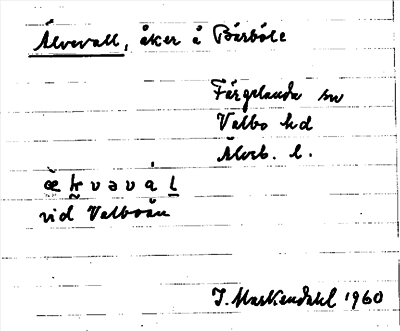 Älvevall, åker å Bärböle
Färgelanda sn
Valbo hd
Älvsb. l.
vid Valboån
J. Markendahl 1960